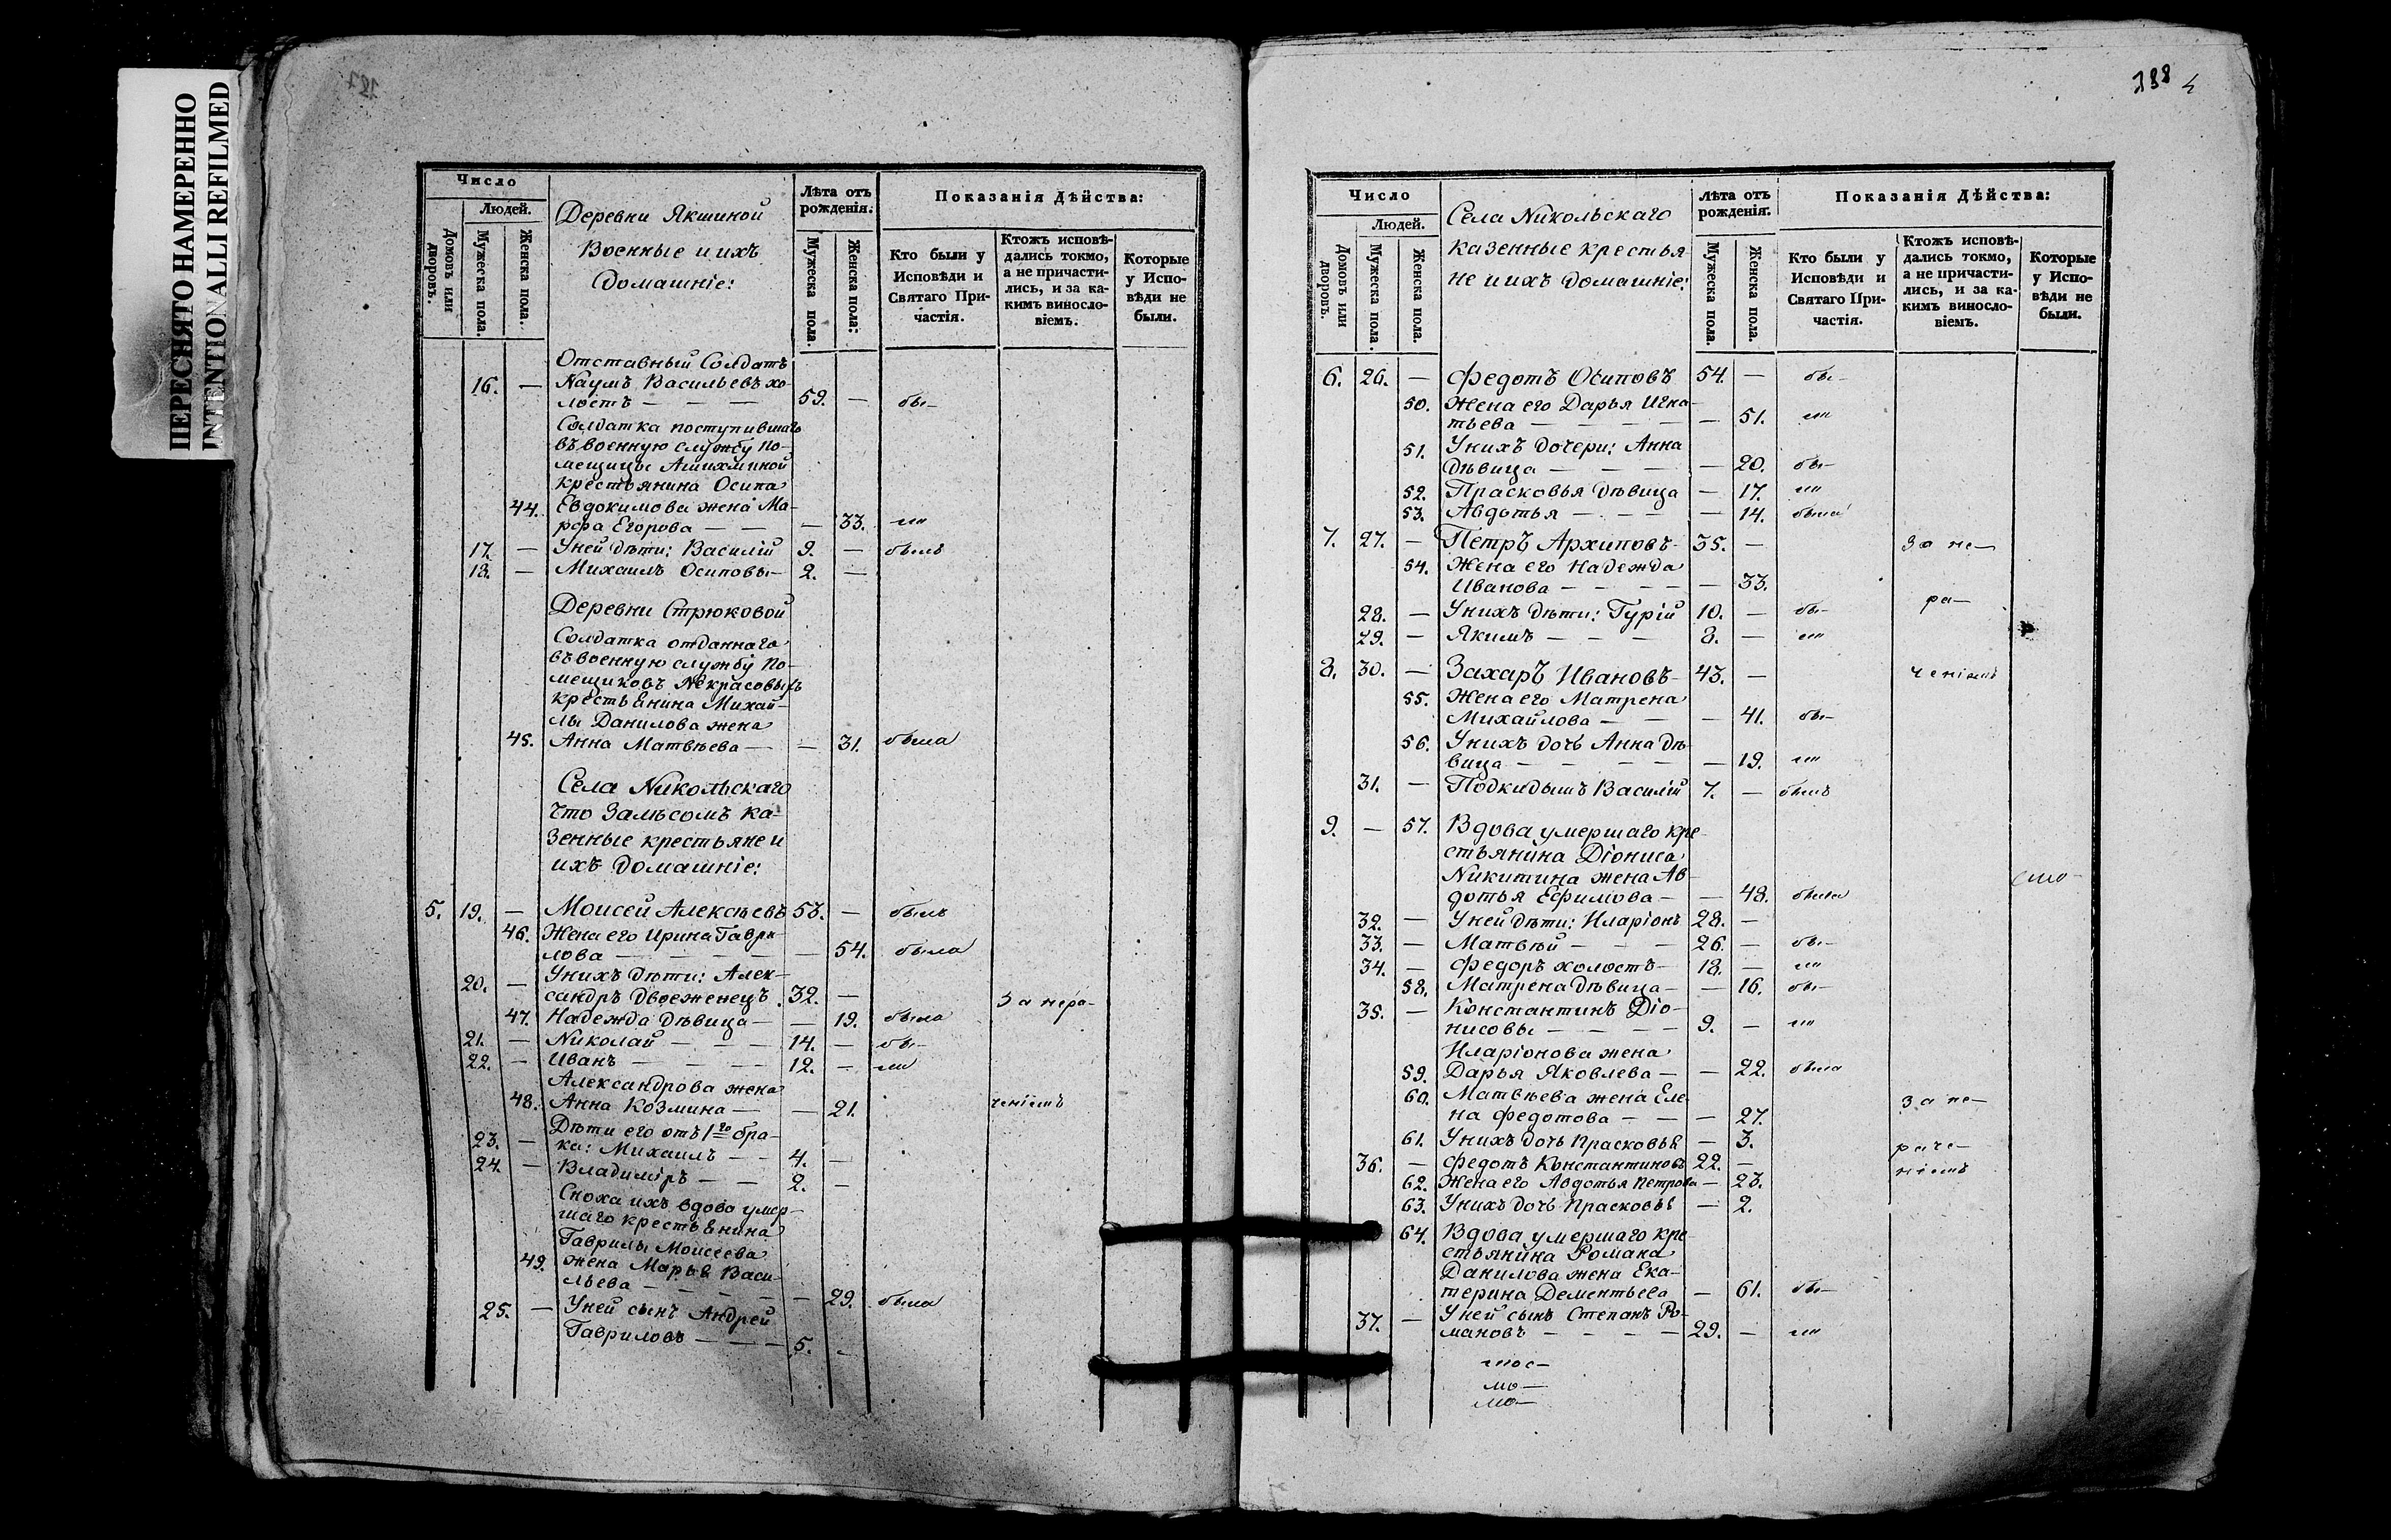 ПЕРЕСНЯТО НАМЕРЕННО
INTENTIONALLI REFILMED
187
Число
Людей.
Домовъ или дворовъ.
Мужеска пола.
Женска пола.
Деревни Якшиной
Военные и ихъ
Домашніе:
Лѣта отъ рожденія.
Мужеска пола.
Женска пола.
Показанія Дѣйства:
Кто были у Исповѣди и Святаго Причастія.
Ктожъ исповѣдались токмо, а не причастились, и за какимъ винословіемъ.
Которые у Исповѣди не были.
Отставный Солдатъ
16. — Наумъ Васильевъ хо-
лостъ — — — 59. — бы-
Солдатка поступившаго
въ военную службу по-
мещицы
крестьянина Осипа
44. Евдокимова жена Ма-
рфа Егорова — — — 33. ли
17. — У ней дѣти: Василій 9. — былъ
18. — Михаилъ Осиповы — 2. —
Деревни Стрюковой
Солдатка отданнаго
въ военную службу по-
мещиковъ Некрасовыхъ
крестьянина Михай-
лы Данилова жена
45. Анна Матвѣева — — 31. была
Села Никольскаго
что Залѣсомъ ка-
зенные крестьяне и
ихъ домашніе:
5. 19. — Моисей Алексѣевъ 53. — былъ
46. Жена его Ирина Гаври-
лова — — — — — 54. была
20. — У нихъ дѣти: Алек-
сандръ двоеженецъ. 32. — За нера-
47. Надежда дѣвица — — 19. была
21. — Николай — — — 14. — бы-
22. — Иванъ — — — 12. — ли
Александрова жена
48. Анна Козмина — — 21. ченіемъ
Дѣти его отъ 1го бра-
23. — ка: Михаилъ — — 4. —
24. — Владиміръ — — 2. —
Сноха ихъ вдова умер-
шаго крестьянина
Гаврилы Моисеева
49. жена Марья Васи-
льева — — — — — 29. была
25. — У ней сынъ Андрей
Гавриловъ — — — 5. —
188
Число
Людей.
Домовъ или дворовъ.
Мужеска пола.
Женска пола.
Села Никольскаго
казенные крестья
не и ихъ домашніе:
Лѣта отъ рожденія.
Мужеска пола.
Женска пола.
Показанія Дѣйства:
Кто были у Исповѣди и Святаго Причастія.
Ктожъ исповѣдались токмо, а не причастились, и за какимъ винословіемъ.
Которые у Исповѣди не были.
6. 26. — Федотъ Осиповъ 54. — бы-
50. Жена его Дарья Игна-
тьева — — — — — 51. ли
51. У нихъ дочери: Анна
дѣвица — — — — 20. бы-
52. Прасковья дѣвица — 17. ли
53. Авдотья — — — — 14. была
7. 27. — Петръ Архиповъ — 35. — За не-
54. Жена его Надежда
Иванова — — — — — 33.
28. — У нихъ дѣти: Гурій 10. — бы- ра-
29. — Якимъ — — — 8. — ли
8. 30. — Захаръ Ивановъ — 43. — ченіемъ
55. Жена его Матрена
Михайлова — — — 41. бы-
56. У нихъ дочь Анна дѣ-
вица — — — — — 19. ли
31. — Подкидышъ Василій 7. — былъ
9. — 57. Вдова умершаго кре-
стьянина Діониса
Никитина жена Ав-
дотья Ефимова — — 48. была
32. — У ней дѣти: Иларіонъ 28. —
33. — Матвѣй — — — 26. — бы-
34. — Федоръ холостъ — 18. — ли
58. Матрена дѣвица — — 16. бы-
35. — Константинъ Діо-
нисовы — — — — 9. — ли
Иларіонова жена
59. Дарья Яковлева — — 22. была
60. Матвѣева жена Еле-
на Федотова — — — 27. За не-
61. У нихъ дочь Прасковья — 3. раче-
36. — Федотъ Константиновъ 22. — ніемъ
62. Жена его Авдотья Петрова — 23.
63. У нихъ дочь Прасковья — 2.
64. Вдова умершаго кре-
стьянина Романа
Данилова жена Ека-
терина Дементьева — 61. бы-
37. — У ней сынъ Степанъ Ро-
мановъ — — — — 29. — ли